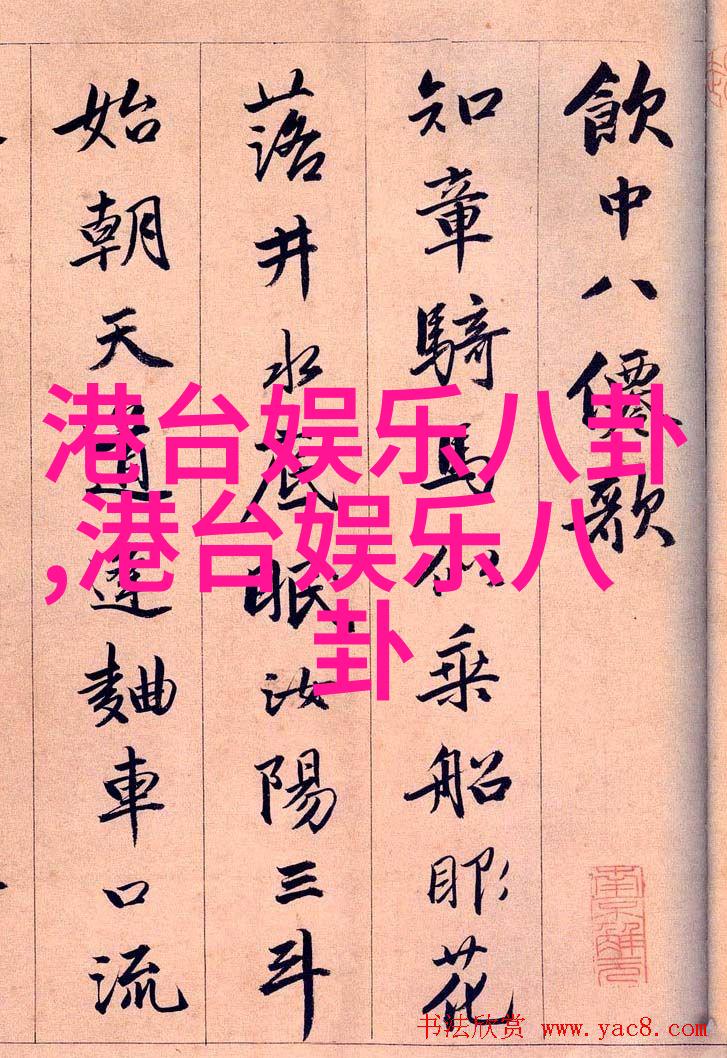 飲中八僊歌
知章騎馬似乘船眼花
落井水底眠汝陽三斗
始朝天道逢麯車口流
港台娱乐八卦
,港台娱乐八
卦
南京解元
书法欣赏 www.yac8.com